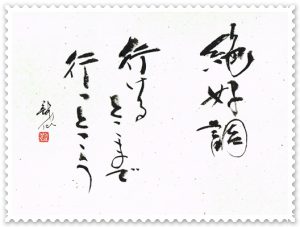 絶好調
行ける
ところまで
行っとこう